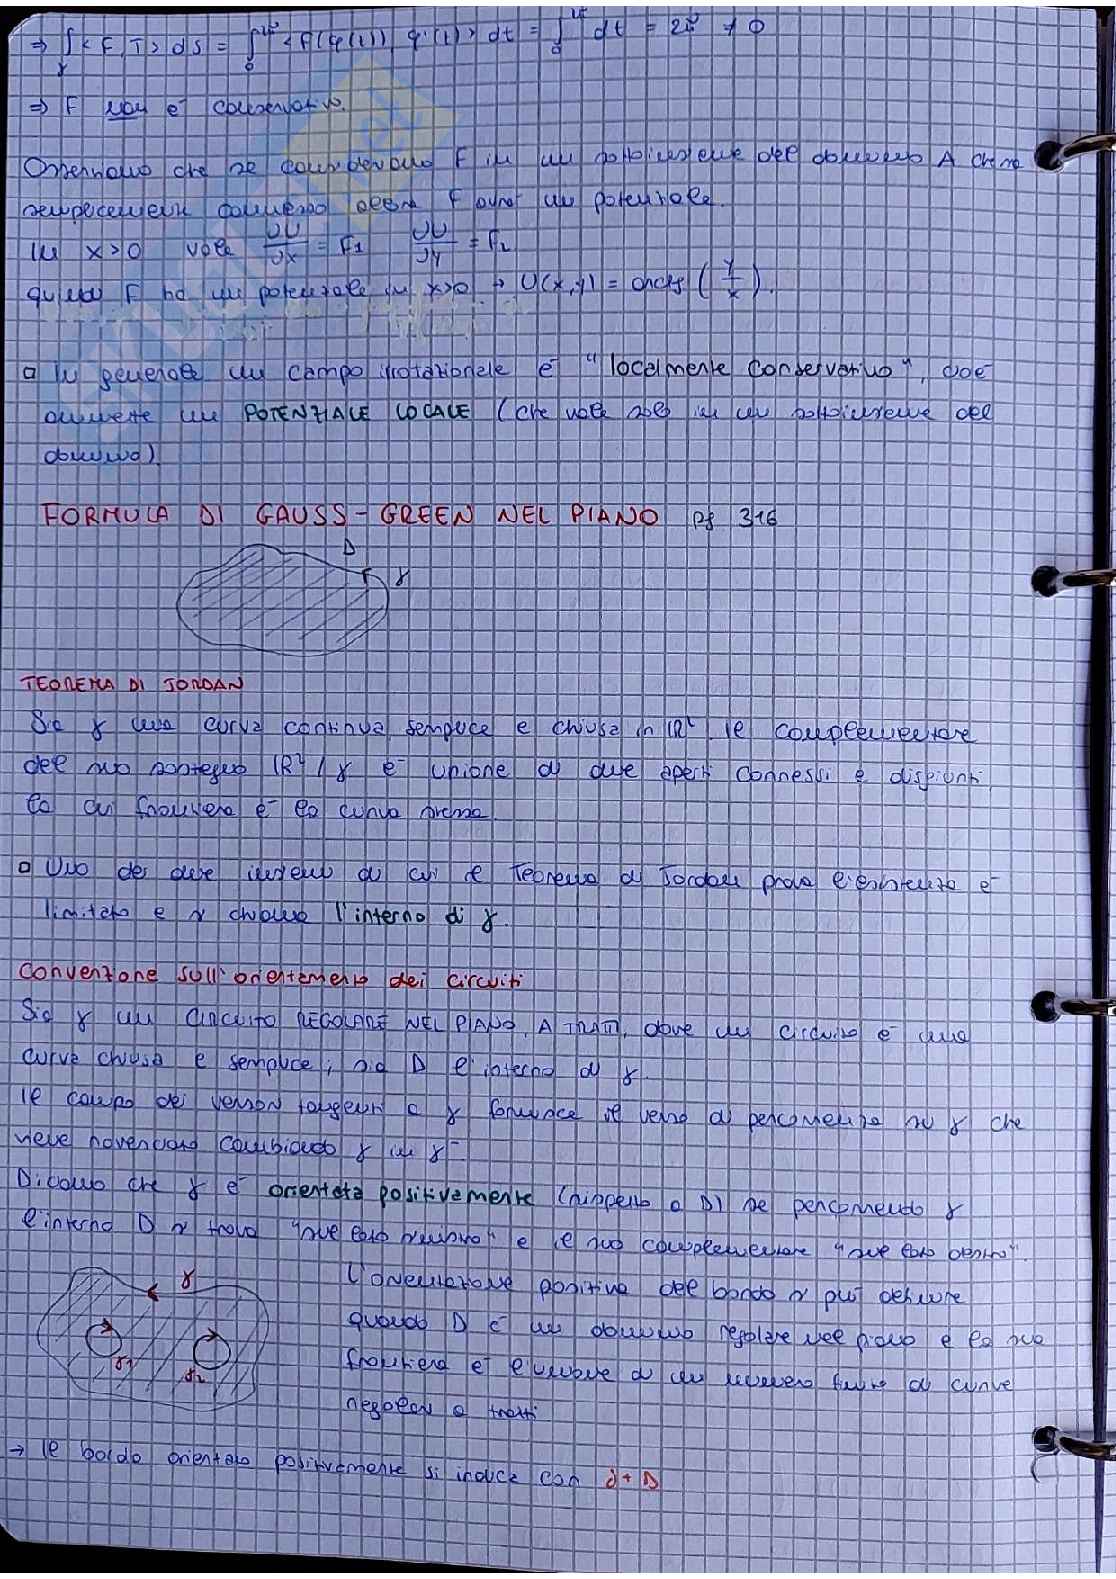 ⇒ ∫γ <F, T> ds = ∫₀^2π <F(φ(t)), φ'(t)> dt = ∫₀^2π dt = 2π ≠ 0
⇒ F non è conservativo.
Osserviamo che se consideriamo F in un sottoinsieme del dominio A che sia
semplicemente connesso allora F avrà un potenziale.
in x>0 vale ∂U/∂x = F1 ∂U/∂y = F2
quindi F ha un potenziale in x>0 → U(x,y) = arctg (y/x).
□ In generale un campo irrotazionale è "localmente conservativo", cioè
ammette un POTENZIALE LOCALE (che vale solo in un sottoinsieme del
dominio).
FORMULA DI GAUSS-GREEN NEL PIANO pg 316
D
γ
TEOREMA DI JORDAN
Sia γ una curva continua semplice e chiusa in ℝ². Il complementare
del suo sostegno ℝ²/γ è unione di due aperti connessi e disgiunti,
la cui frontiera è la curva stessa.
□ Uno dei due insiemi di cui il Teorema di Jordan prova l'esistenza è
limitato e si chiama l'interno di γ.
Convenzione sull'orientamento dei circuiti
Sia γ un circuito REGOLARE NEL PIANO, A TRATTI, dove un circuito è una
curva chiusa e semplice; sia D l'interno di γ.
Il campo dei versori tangenti a γ fornisce il verso di percorrenza su γ che
viene rovesciato cambiando γ in γ⁻
Diciamo che γ è orientata positivamente (rispetto a D) se percorrendo γ
l'interno D si trova "sul lato sinistro" e il suo complementare "sul lato destro".
γ
γ1
γ2
L'orientazione positiva del bordo si può definire
quando D è un dominio regolare nel piano e la sua
frontiera è l'unione di un numero finito di curve
regolari a tratti
→ Il bordo orientato positivamente si indica con ∂+D